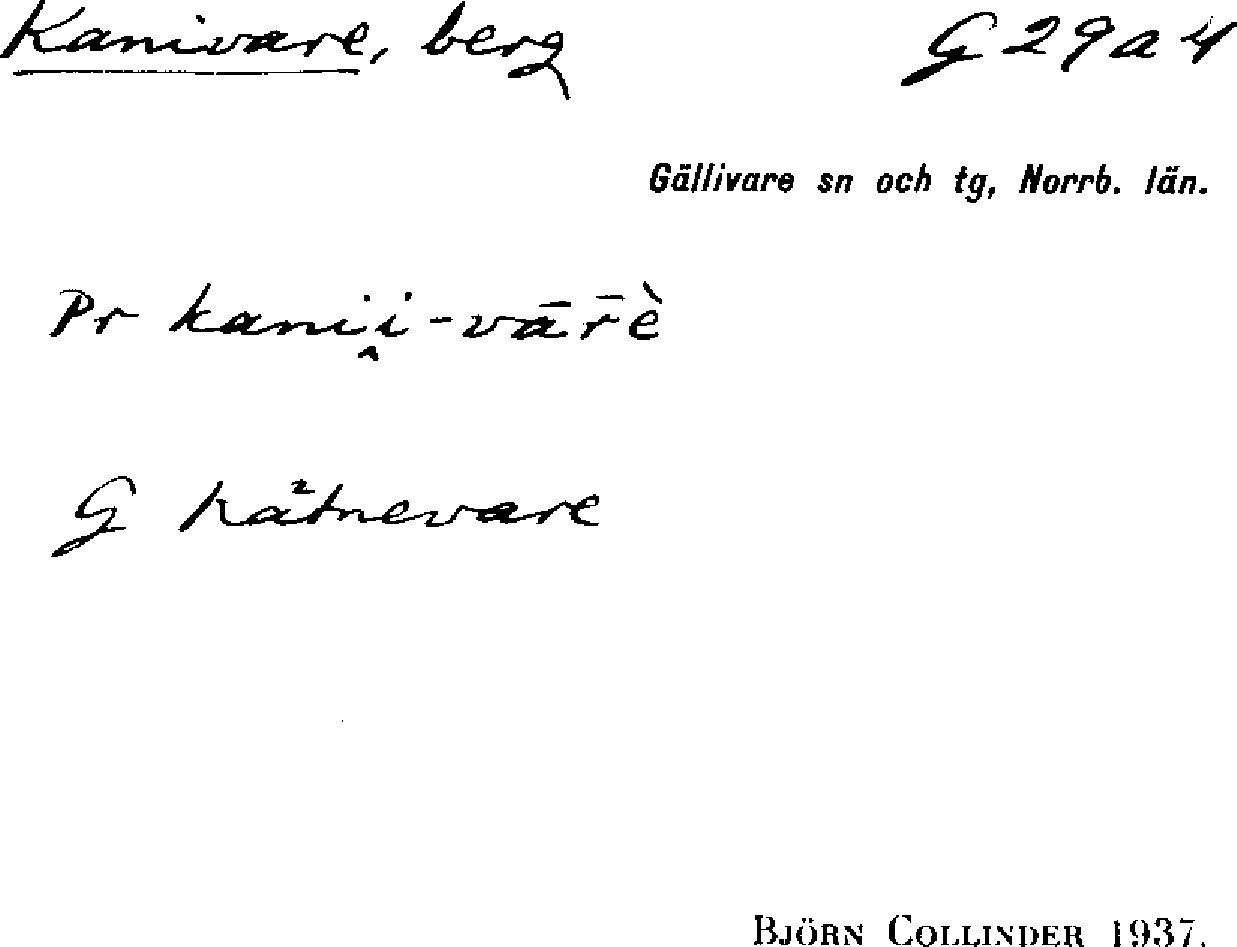 Kanivare, berg G 29 a 4
Gällivare sn och tg, Norrb. län.
Pr kanii̭-vār̄ė̀
G kätnevare
BJÖRN COLLINDER 1937.